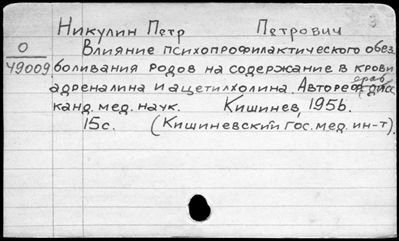 Никулин Петр Петрович
О Влияние психопрофилактического обез-
49009 боливания родов на содержание в крови
адреналина и ацетилхолина. Автореферат дисс
канд. мед. наук. Кишинев, 1956.
15с. (Кишиневский Гос. мед. ин-т).